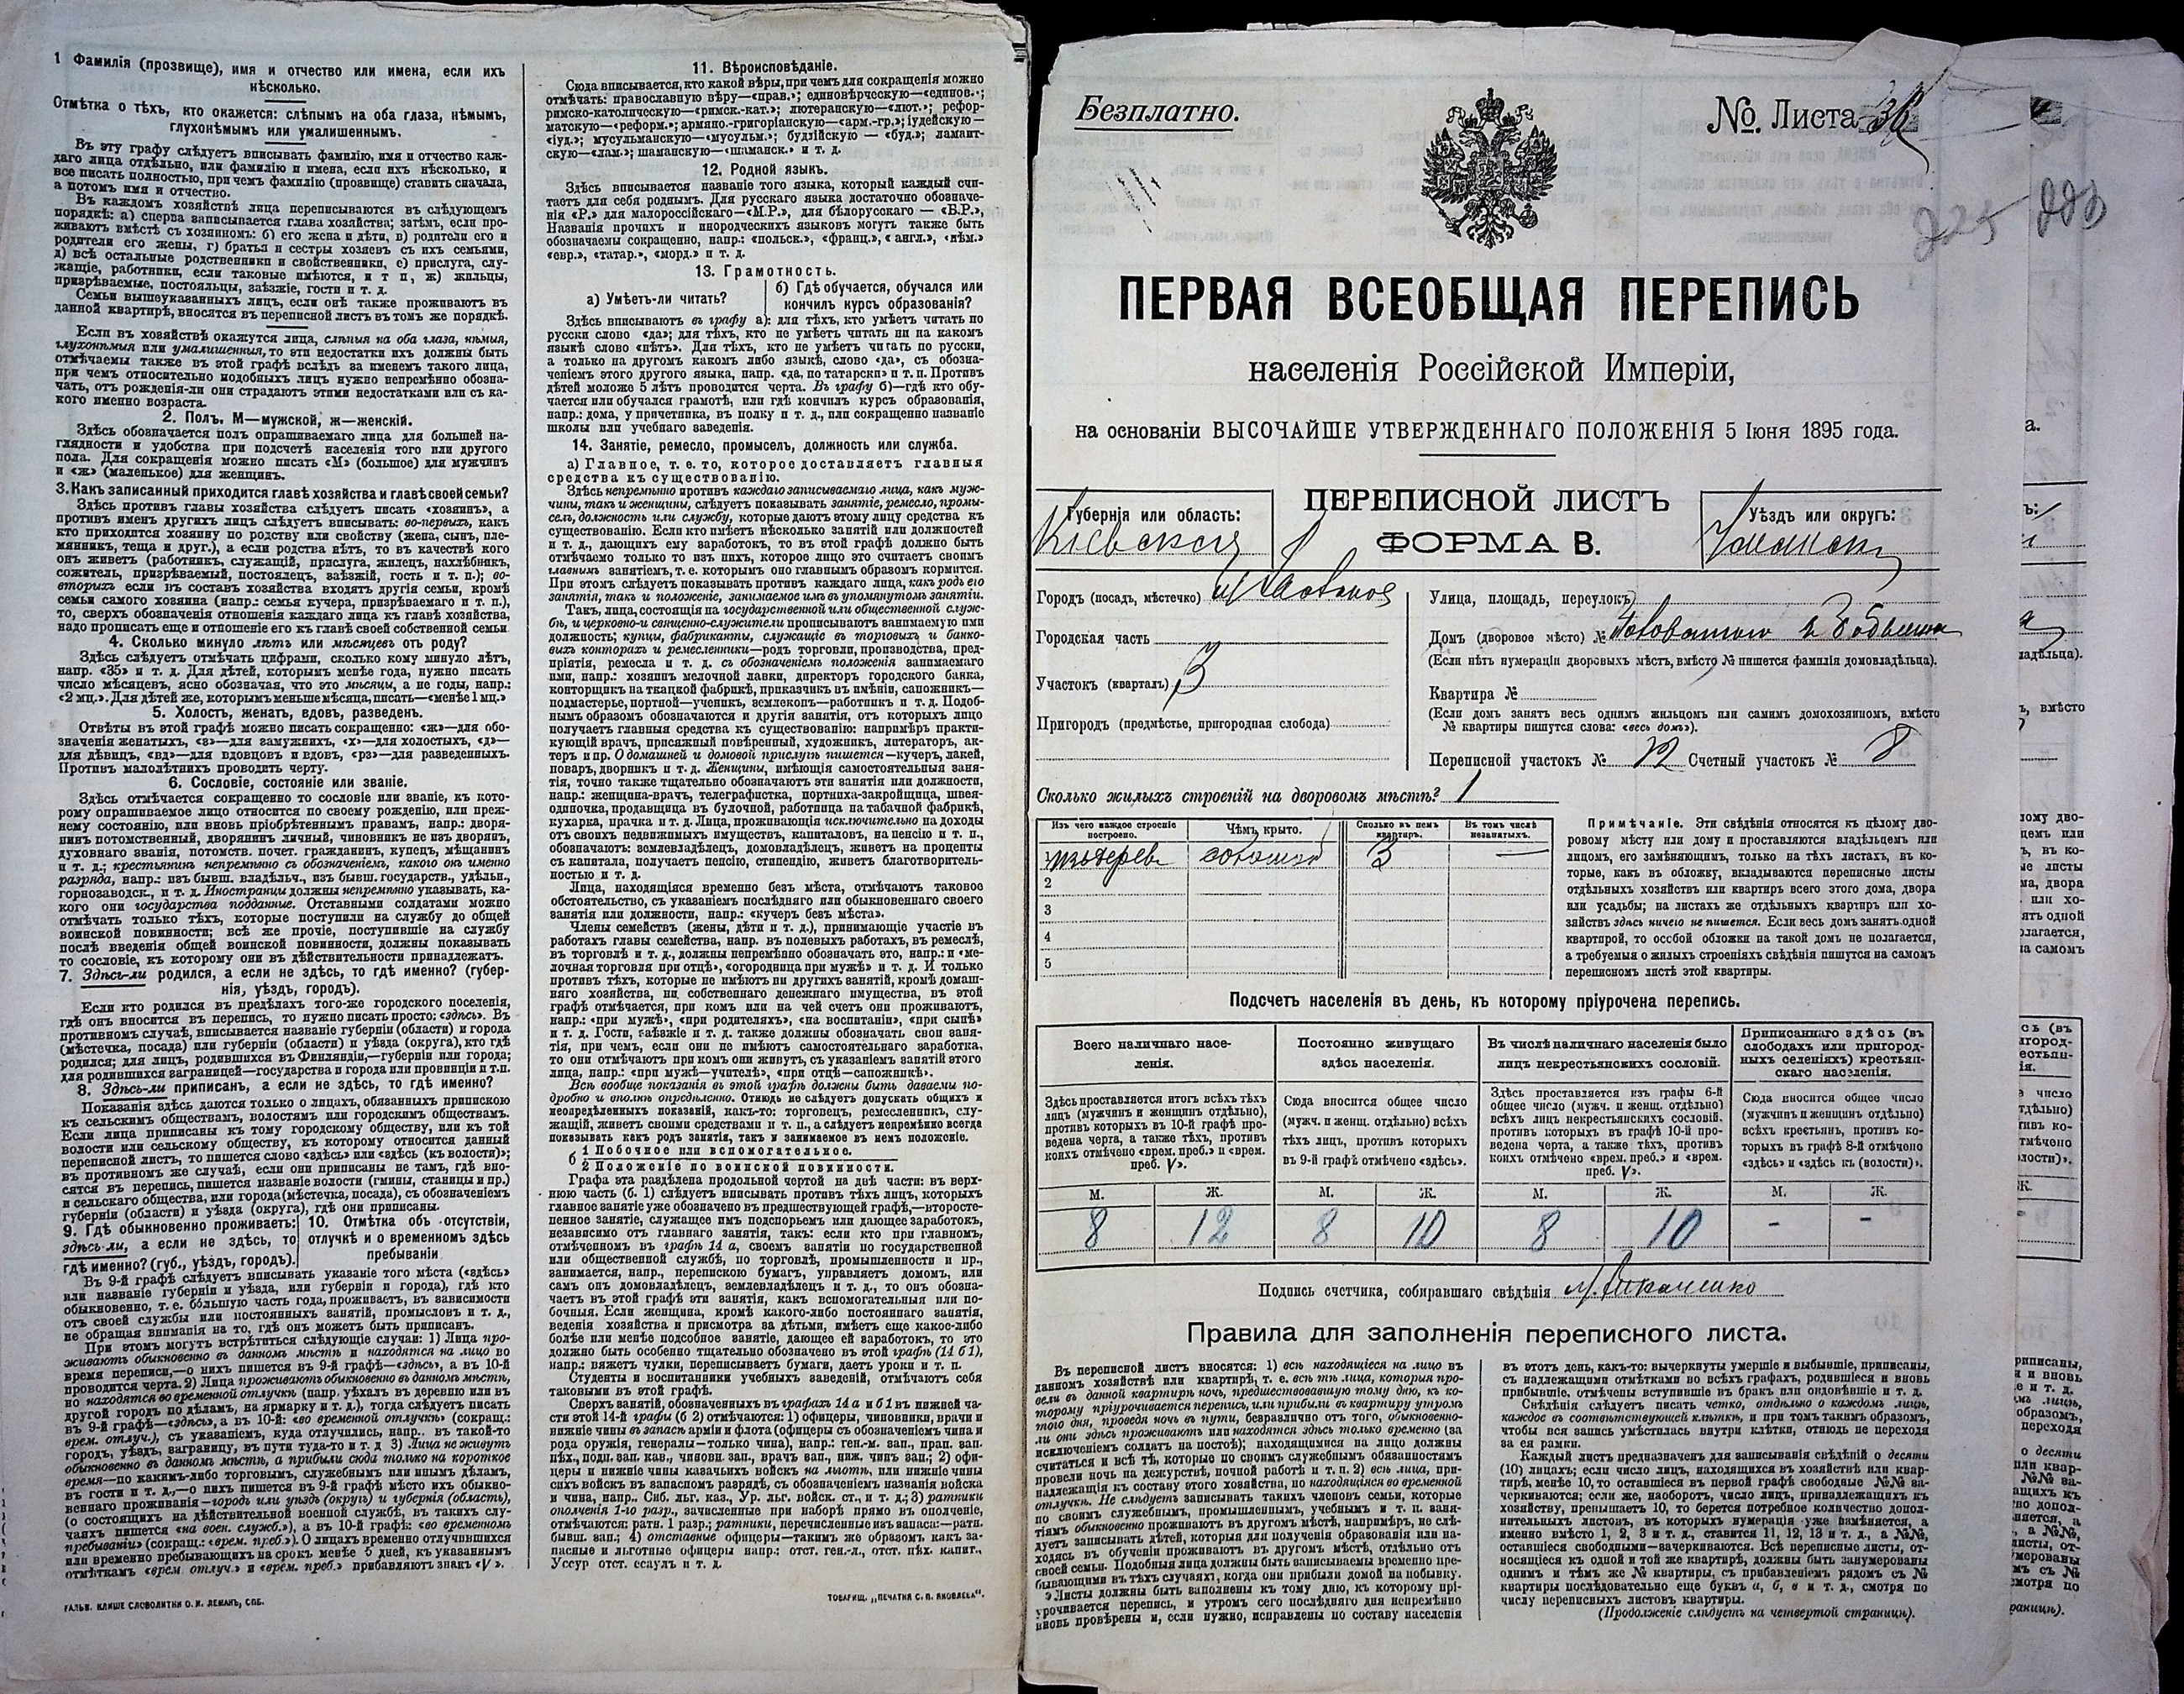 1 Фамилія (прозвище), имя и отчество или имена, если ихъ
нѣсколько.
Отмѣтка о тѣхъ, кто окажется: слѣпымъ на оба глаза, нѣмымъ,
глухонѣмымъ или умалишеннымъ.
Въ эту графу слѣдуетъ вписывать фамилію, имя и отчество каж-
даго лица отдѣльно, или фамилію и имена, если ихъ нѣсколько, и
все писать полностью, при чемъ фамилію (прозвище) ставить сначала,
а потомъ имя и отчество.
Въ каждомъ хозяйствѣ лица переписываются въ слѣдующемъ
порядкѣ: а) сперва записывается глава хозяйства; затѣмъ, если про-
живаютъ вмѣстѣ съ хозяиномъ: б) его жена и дѣти, в) родители его и
родители его жены, г) братья и сестры хозяевъ съ ихъ семьями,
д) всѣ остальные родственники и свойственники, е) прислуга, слу-
жащіе, работники, если таковые имѣются, и т п, ж) жильцы,
призрѣваемые, постояльцы, заѣзжіе, гости и т. д.
Семьи вышеуказанныхъ лицъ, если онѣ также проживаютъ въ
данной квартирѣ, вносятся въ переписной листъ въ томъ же порядкѣ.
Если въ хозяйствѣ окажутся лица, слѣпыя на оба глаза, нѣмыя,
глухонѣмыя или умалишенныя, то эти недостатки ихъ должны быть
отмѣчаемы также въ этой графѣ вслѣдъ за именемъ такого лица,
при чемъ относительно подобныхъ лицъ нужно непремѣнно обозна-
чать, отъ рожденія-ли они страдаютъ этими недостатками или съ ка-
кого именно возраста.
2. Полъ. М—мужской, ж—женскій.
Здѣсь обозначается полъ опрашиваемаго лица для большей на-
глядности и удобства при подсчетѣ населенія того или другого
пола. Для сокращенія можно писать «М» (большое) для мужчинъ
и «ж» (маленькое) для женщинъ.
3. Какъ записанный приходится главѣ хозяйства и главѣ своей семьи?
Здѣсь противъ главы хозяйства слѣдуетъ писать «хозяинъ», а
противъ именъ другихъ лицъ слѣдуетъ вписывать: во-первыхъ, какъ
кто приходится хозяину по родству или свойству (жена, сынъ, пле-
мянникъ, теща и друг.), а если родства нѣтъ, то въ качествѣ кого
онъ живетъ (работникъ, служащій, прислуга, жилецъ, нахлѣбникъ,
сожитель, призрѣваемый, постоялецъ, заѣзжій, гость и т. п.); во-
вторыхъ если въ составъ хозяйства входятъ другія семьи, кромѣ
семьи самого хозяина (напр.: семья кучера, призрѣваемаго и т. п.),
то, сверхъ обозначенія отношенія каждаго лица къ главѣ хозяйства,
надо прописать еще и отношеніе его къ главѣ своей собственной семьи.
4. Сколько минуло лѣтъ или мѣсяцевъ отъ роду?
Здѣсь слѣдуетъ отмѣчать цифрами, сколько кому минуло лѣтъ,
напр. «35» и т. д. Для дѣтей, которымъ менѣе года, нужно писать
число мѣсяцевъ, ясно обозначая, что это мѣсяцы, а не годы, напр.:
«2 мц.». Для дѣтей же, которымъ меньше мѣсяца, писать—«менѣе 1 мц.»
5. Холостъ, женатъ, вдовъ, разведенъ.
Отвѣты въ этой графѣ можно писать сокращенно: «ж»—для обо-
значенія женатыхъ, «з»—для замужнихъ, «х»—для холостыхъ, «д»—
для дѣвицъ, «вд»—для вдовцовъ и вдовъ, «рз»—для разведенныхъ.
Противъ малолѣтнихъ проводить черту.
6. Сословіе, состояніе или званіе.
Здѣсь отмѣчается сокращенно то сословіе или званіе, къ кото-
рому опрашиваемое лицо относится по своему рожденію, или преж-
нему состоянію, или вновь пріобрѣтеннымъ правамъ, напр.: дворя-
нинъ потомственный, дворянинъ личный, чиновникъ не изъ дворянъ,
духовнаго званія, потомств. почет. гражданинъ, купецъ, мѣщанинъ
и т. д.; крестьянинъ непремѣнно съ обозначеніемъ, какого онъ именно
разряда, напр.: изъ бывш. владѣльч., изъ бывш. государств., удѣльн.,
горнозаводск., и т. д. Иностранцы должны непремѣнно указывать, ка-
кого они государства подданные. Отставными солдатами можно
отмѣчать только тѣхъ, которые поступили на службу до общей
воинской повинности; всѣ же прочіе, поступившіе на службу
послѣ введенія общей воинской повинности, должны показывать
то сословіе, къ которому они въ дѣйствительности принадлежатъ.
7. Здѣсь-ли родился, а если не здѣсь, то гдѣ именно? (губер-
нія, уѣздъ, городъ).
Если кто родился въ предѣлахъ того-же городского поселенія,
гдѣ онъ вносится въ перепись, то нужно писать просто: «здѣсь». Въ
противномъ случаѣ, вписывается названіе губерніи (области) и города
(мѣстечка, посада) или губерніи (области) и уѣзда (округа), кто гдѣ
родился; для лицъ, родившихся въ Финляндіи,—губерніи или города;
для родившихся заграницей—государства и города или провинціи и т.п.
8. Здѣсь-ли приписанъ, а если не здѣсь, то гдѣ именно?
Показанія здѣсь даются только о лицахъ, обязанныхъ припискою
къ сельскимъ обществамъ, волостямъ или городскимъ обществамъ.
Если лица приписаны къ тому городскому обществу, или къ той
волости или сельскому обществу, къ которому относится данный
переписной листъ, то пишется слово «здѣсь» или «здѣсь (къ волости)»;
въ противномъ же случаѣ, если они приписаны не тамъ, гдѣ вно-
сятся въ перепись, пишется названіе волости (гмины, станицы и пр.)
и сельскаго общества, или города (мѣстечка, посада), съ обозначеніемъ
губерніи (области) и уѣзда (округа), гдѣ они приписаны.
9. Гдѣ обыкновенно проживаетъ:
здѣсь-ли, а если не здѣсь, то
гдѣ именно? (губ., уѣздъ, городъ).
10. Отмѣтка объ отсутствіи,
отлучкѣ и о временномъ здѣсь
пребываніи
Въ 9-й графѣ слѣдуетъ вписывать указаніе того мѣста («здѣсь»
или названіе губерніи и уѣзда, или губерніи и города), гдѣ кто
обыкновенно, т. е. бо́льшую часть года, проживаетъ, въ зависимости
отъ своей службы или постоянныхъ занятій, промысловъ и т. д.,
не обращая вниманія на то, гдѣ онъ можетъ быть приписанъ.
При этомъ могутъ встрѣтиться слѣдующіе случаи: 1) Лица про-
живаютъ обыкновенно въ данномъ мѣстѣ и находятся на лицо во
время переписи,—о нихъ пишется въ 9-й графѣ—«здѣсь», а въ 10-й
проводится черта. 2) Лица проживаютъ обыкновенно въ данномъ мѣстѣ,
но находятся во временной отлучкѣ (напр. уѣхалъ въ деревню или въ
другой городъ по дѣламъ, на ярмарку и т. д.), тогда слѣдуетъ писать
въ 9-й графѣ—«здѣсь», а въ 10-й: «во временной отлучкѣ» (сокращ.:
врем. отлуч.), съ указаніемъ, куда отлучились, напр.. въ такой-то
городъ, уѣздъ, заграницу, въ пути туда-то и т. д 3) Лица не живутъ
обыкновенно въ данномъ мѣстѣ, а прибыли сюда только на короткое
время—по какимъ-либо торговымъ, служебнымъ или инымъ дѣламъ,
въ гости и т. д.,—о нихъ пишется въ 9-й графѣ мѣсто ихъ обыкно-
веннаго проживанія—городъ или уѣздъ (округъ) и губернія (область),
(о состоящихъ на дѣйствительной военной службѣ, въ такихъ слу-
чаяхъ пишется «на воен. службѣ»), а въ 10-й графѣ: «во временномъ
пребываніи» (сокращ.: «врем. преб.»). О лицахъ временно отлучившихся
или временно пребывающихъ на срокъ менѣе 5 дней, къ указаннымъ
отмѣткамъ «врем. отлуч.» и «врем. преб.» прибавляютъ знакъ «V».
ГАЛЬВ. КЛИШЕ СЛОВОЛИТНИ О. И. ЛЕМАНЪ, СПБ.
11. Вѣроисповѣданіе.
Сюда вписывается, кто какой вѣры, при чемъ для сокращенія можно
отмѣчать: православную вѣру—«прав.»; единовѣрческую—«единов.»;
римско-католическую—«римск.-кат.»; лютеранскую—«лют.»; рефор-
матскую—«реформ.»; армяно.-григоріанскую—«арм.-гр.»; іудейскую—
«іуд.»; мусульманскую—«мусульм.»; буддійскую — «буд.»; ламаит-
скую—«лам.»; шаманскую—«шаманск.» и т. д.
12. Родной языкъ.
Здѣсь вписывается названіе того языка, который каждый счи-
таетъ для себя роднымъ. Для русскаго языка достаточно обозначе-
нія «Р.» для малороссійскаго—«М.Р.», для бѣлорусскаго — «Б.Р.»,
Названія прочихъ и инородческихъ языковъ могутъ также быть
обозначаемы сокращенно, напр.: «польск.», «франц.», «англ.», «нѣм.»
«евр.», «татар.», «морд.» и т. д.
13. Грамотность.
а) Умѣетъ-ли читать?
б) Гдѣ обучается, обучался или
кончилъ курсъ образованія?
Здѣсь вписываютъ въ графу а): для тѣхъ, кто умѣетъ читать по
русски слово «да»; для тѣхъ, кто не умѣетъ читать ни на какомъ
языкѣ слово «нѣтъ». Для тѣхъ, кто не умѣетъ читать по русски,
а только на другомъ какомъ либо языкѣ, слово «да», съ обозна-
ченіемъ этого другого языка, напр. «да, по татарски» и т. п. Противъ
дѣтей моложе 5 лѣтъ проводится черта. Въ графу б)—гдѣ кто обу-
чается или обучался грамотѣ, или гдѣ кончилъ курсъ образованія,
напр.: дома, у причетника, въ полку и т. д., или сокращенно названіе
школы или учебнаго заведенія.
14. Занятіе, ремесло, промыселъ, должность или служба.
а) Главное, т. е. то, которое доставляетъ главныя
средства къ существованію.
Здѣсь непремѣнно противъ каждаго записываемаго лица, какъ муж-
чины, такъ и женщины, слѣдуетъ показывать занятіе, ремесло, промы-
селъ, должность или службу, которые даютъ этому лицу средства къ
существованію. Если кто имѣетъ нѣсколько занятій или должностей
и т. д., дающихъ ему заработокъ, то въ этой графѣ должно быть
отмѣчаемо только то изъ нихъ, которое лицо это считаетъ своимъ
главнымъ занятіемъ, т. е. которымъ оно главнымъ образомъ кормится.
При этомъ слѣдуетъ показывать противъ каждаго лица, какъ родъ его
занятія, такъ и положеніе, занимаемое имъ въ упомянутомъ занятіи.
Такъ, лица, состоящія на государственной или общественной служ-
бѣ, и церковно-и священно-служители прописываютъ занимаемую ими
должность; купцы, фабриканты, служащіе въ торговыхъ и банко-
выхъ конторахъ и ремесленники—родъ торговли, производства, пред-
пріятія, ремесла и т. д. съ обозначеніемъ положенія занимаемаго
ими, напр.: хозяинъ мелочной лавки, директоръ городского банка,
конторщикъ на ткацкой фабрикѣ, приказчикъ въ имѣніи, сапожникъ—
подмастерье, портной—ученикъ, землекопъ—работникъ и т. д. Подоб-
нымъ образомъ обозначаются и другія занятія, отъ которыхъ лицо
получаетъ главныя средства къ существованію: напримѣръ практи-
кующій врачъ, присяжный повѣренный, художникъ, литераторъ, ак-
теръ и пр. О домашней и домовой прислугѣ пишется—кучеръ, лакей,
поваръ, дворникъ и т. д. Женщины, имѣющія самостоятельныя заня-
тія, точно также тщательно обозначаютъ эти занятія или должности,
напр.: женщина-врачъ, телеграфистка, портниха-закройщица, швея-
одиночка, продавщица въ булочной, работница на табачной фабрикѣ,
кухарка, прачка и т. д. Лица, проживающія исключительно на доходы
отъ своихъ недвижимыхъ имуществъ, капиталовъ, на пенсію и т. п.,
обозначаютъ: землевладѣлецъ, домовладѣлецъ, живетъ на проценты
съ капитала, получаетъ пенсію, стипендію, живетъ благотворитель-
ностью и т. д.
Лица, находящіяся временно безъ мѣста, отмѣчаютъ таковое
обстоятельство, съ указаніемъ послѣдняго или обыкновеннаго своего
занятія или должности, напр.: «кучеръ безъ мѣста».
Члены семействъ (жены, дѣти и т. д.), принимающіе участіе въ
работахъ главы семейства, напр. въ полевыхъ работахъ, въ ремеслѣ,
въ торговлѣ и т. д., должны непремѣнно обозначать это, напр.: и «ме-
лочная торговля при отцѣ», «огородница при мужѣ» и т. д. И только
противъ тѣхъ, которые не имѣютъ ни другихъ занятій, кромѣ домаш-
няго хозяйства, ни собственнаго денежнаго имущества, въ этой
графѣ отмѣчается, при комъ или на чей счетъ они проживаютъ,
напр.: «при мужѣ», «при родителяхъ», «на воспитаніи», «при сынѣ»
и т. д. Гости, заѣзжіе и т. д. также должны обозначать свои заня-
тія, при чемъ, если они не имѣютъ самостоятельнаго заработка,
то они отмѣчаютъ при комъ они живутъ, съ указаніемъ занятій этого
лица, напр.: «при мужѣ—учителѣ», «при отцѣ—сапожникѣ».
Всѣ вообще показанія въ этой графѣ должны быть даваемы по-
дробно и вполнѣ опредѣленно. Отнюдь не слѣдуетъ допускать общихъ и
неопредѣленныхъ показаній, какъ-то: торговецъ, ремесленникъ, слу-
жащій, живетъ своими средствами и т. п., а слѣдуетъ непремѣнно всегда
показывать какъ родъ занятія, такъ и занимаемое въ немъ положеніе.
б 1 Побочное или вспомогательное.
2 Положеніе по воинской повинности.
Графа эта раздѣлена продольной чертой на двѣ части: въ верх-
нюю часть (б. 1) слѣдуетъ вписывать противъ тѣхъ лицъ, которыхъ
главное занятіе уже обозначено въ предшествующей графѣ,—второсте-
пенное занятіе, служащее имъ подспорьемъ или дающее заработокъ,
независимо отъ главнаго занятія, такъ: если кто при главномъ,
отмѣченномъ въ графѣ 14 а, своемъ занятіи по государственной
или общественной службѣ, по торговлѣ, промышленности и пр.,
занимается, напр., перепискою бумагъ, управляетъ домомъ, или
самъ онъ домовладѣлецъ, землевладѣлецъ и т. д., то онъ обозна-
чаетъ въ этой графѣ эти занятія, какъ вспомогательныя или по-
бочныя. Если женщина, кромѣ какого-либо постояннаго занятія,
веденія хозяйства и присмотра за дѣтьми, имѣетъ еще какое-либо
болѣе или менѣе подсобное занятіе, дающее ей заработокъ, то это
должно быть особенно тщательно обозначено въ этой графѣ (14 б 1),
напр.: вяжетъ чулки, переписываетъ бумаги, даетъ уроки и т. п.
Студенты и воспитанники учебныхъ заведеній, отмѣчаютъ себя
таковыми въ этой графѣ.
Сверхъ занятій, обозначенныхъ въ графахъ 14 а и б 1 въ нижней ча-
сти этой 14-й графы (б 2) отмѣчаются: 1) офицеры, чиновники, врачи и
нижніе чины въ запасѣ арміи и флота (офицеры съ обозначеніемъ чина и
рода оружія, генералы—только чина), напр.: ген.-м. зап., прап. зап.
пѣх., подп. зап. кав., чиновн. зап., врачъ зап., ниж. чинъ зап.; 2) офи-
церы и нижніе чины казачьихъ войскъ на льготѣ, или нижніе чины
сихъ войскъ въ запасномъ разрядѣ, съ обозначеніемъ названія войска
и чина, напр.. Сиб. льг. каз., Ур. льг. войск. ст., и т. д.; 3) ратники
ополченія 1-го разр., зачисленные при наборѣ прямо въ ополченіе,
отмѣчаются: ратн. 1 разр.; ратники, перечисленные изъ запаса:—ратн.
бывш. зап.; 4) отставные офицеры—такимъ же образомъ какъ за-
пасные и льготные офицеры напр.: отст. ген.-л., отст. пѣх. капит.,
Уссур отст. есаулъ и т. д.
ТОВАРИЩ. „ПЕЧАТНЯ С. П. ЯКОВЛЕВА“.
Безплатно.
№. Листа 36
225
ПЕРВАЯ ВСЕОБЩАЯ ПЕРЕПИСЬ
населенія Россійской Имперіи,
на основаніи ВЫСОЧАЙШЕ УТВЕРЖДЕННАГО ПОЛОЖЕНІЯ 5 Іюня 1895 года.
ПЕРЕПИСНОЙ ЛИСТЪ
ФОРМА В.
Губернія или область:
Кіевская
Уѣздъ или округъ:
Уманск
Городъ (посадъ, мѣстечко)
Городская часть
Участокъ (кварталъ) 3
Пригородъ (предмѣстье, пригородная слобода)
Улица, площадь, переулокъ
Домъ (дворовое мѣсто) №
(Если нѣтъ нумераціи дворовыхъ мѣстъ, вмѣсто № пишется фамилія домовладѣльца).
Квартира №
(Если домъ занятъ весь однимъ жильцомъ или самимъ домохозяиномъ, вмѣсто
№ квартиры пишутся слова: «весь домъ»).
Переписной участокъ № 12 Счетный участокъ № 8
Сколько жилыхъ строеній на дворовомъ мѣстѣ? 1
Изъ чего каждое строеніе построено.
Чѣмъ крыто.
Сколько въ немъ квартиръ.
Въ томъ числѣ незанятыхъ.
1 изъ дерев соломой 3 —
2
3
4
5
Примѣчаніе. Эти свѣдѣнія относятся къ цѣлому дво-
ровому мѣсту или дому и проставляются владѣльцемъ или
лицомъ, его замѣняющимъ, только на тѣхъ листахъ, въ ко-
торые, какъ въ обложку, вкладываются переписные листы
отдѣльныхъ хозяйствъ или квартиръ всего этого дома, двора
или усадьбы; на листахъ же отдѣльныхъ квартиръ или хо-
зяйствъ здѣсь ничего не пишется. Если весь домъ занятъ одной
квартирой, то особой обложки на такой домъ не полагается,
а требуемыя о жилыхъ строеніяхъ свѣдѣнія пишутся на самомъ
переписномъ листѣ этой квартиры.
Подсчетъ населенія въ день, къ которому пріурочена перепись.
Всего наличнаго насе-
ленія.
Постоянно живущаго
здѣсь населенія.
Въ числѣ наличнаго населенія было
лицъ некрестьянскихъ сословій.
Приписаннаго здѣсь (въ
слободахъ или пригород-
ныхъ селеніяхъ) крестьян-
скаго населенія.
Здѣсь проставляется итогъ всѣхъ тѣхъ
лицъ (мужчинъ и женщинъ отдѣльно),
противъ которыхъ въ 10-й графѣ про-
ведена черта, а также тѣхъ, противъ
коихъ отмѣчено «врем. преб.» и «врем.
преб. V».
Сюда вносится общее число
(мужч. и женщ. отдѣльно) всѣхъ
тѣхъ лицъ, противъ которыхъ
въ 9-й графѣ отмѣчено «здѣсь».
Здѣсь проставляется изъ графы 6-й
общее число (мужч. и женщ. отдѣльно)
всѣхъ лицъ некрестьянскихъ сословій.
противъ которыхъ въ графѣ 10-й про-
ведена черта, а также тѣхъ, противъ
коихъ отмѣчено «врем. преб.» и «врем.
преб. V».
Сюда вносится общее число
(мужчинъ и женщинъ отдѣльно)
всѣхъ крестьянъ, противъ ко-
торыхъ въ графѣ 8-й отмѣчено
«здѣсь» и «здѣсь къ (волости)».
М. Ж. М. Ж. М. Ж. М. Ж.
8 12 8 10 8 10 - -
Подпись счетчика, собиравшаго свѣдѣнія
Правила для заполненія переписного листа.
Въ переписной листъ вносятся: 1) всѣ находящіеся на лицо въ
данномъ хозяйствѣ или квартирѣ, т. е. всѣ тѣ лица, которыя про-
вели въ данной квартирѣ ночь, предшествовавшую тому дню, къ ко-
торому пріурочивается перепись, или прибыли въ квартиру утромъ
этого дня, проведя ночь въ пути, безразлично отъ того, обыкновенно-
ли они здѣсь проживаютъ или находятся здѣсь только временно (за
исключеніемъ солдатъ на постоѣ); находящимися на лицо должны
считаться и всѣ тѣ, которые по своимъ служебнымъ обязанностямъ
провели ночь на дежурствѣ, ночной работѣ и т. п. 2) всѣ лица, при-
надлежащія къ составу этого хозяйства, но находящіяся во временной
отлучкѣ. Не слѣдуетъ записывать такихъ членовъ семьи, которые
по своимъ служебнымъ, промышленнымъ, учебнымъ и т. п. заня-
тіямъ обыкновенно проживаютъ въ другомъ мѣстѣ, напримѣръ, не слѣ-
дуетъ записывать дѣтей, которыя для полученія образованія или на-
ходясь въ обученіи проживаютъ въ другомъ мѣстѣ, отдѣльно отъ
своей семьи. Подобныя лица должны быть записываемы временно пре-
бывающими въ тѣхъ случаяхъ, когда они прибыли домой на побывку.
Листы должны быть заполнены къ тому дню, къ которому прі-
урочивается перепись, и утромъ сего послѣдняго дня непремѣнно
вновь провѣрены и, если нужно, исправлены по составу населенія
въ этотъ день, какъ-то: вычеркнуты умершіе и выбывшіе, приписаны,
съ надлежащими отмѣтками во всѣхъ графахъ, родившіеся и вновь
прибывшіе, отмѣчены вступившіе въ бракъ или овдовѣвшіе и т. д.
Свѣдѣнія слѣдуетъ писать четко, отдѣльно о каждомъ лицѣ,
каждое въ соотвѣтствующей клѣткѣ, и при томъ такимъ образомъ,
чтобы вся запись умѣстилась внутри клѣтки, отнюдь не переходя
за ея рамки.
Каждый листъ предназначенъ для записыванія свѣдѣній о десяти
(10) лицахъ; если число лицъ, находящихся въ хозяйствѣ или квар-
тирѣ, менѣе 10, то оставшіеся въ первой графѣ свободные №№ вы-
черкиваются; если же, наоборотъ, число лицъ, принадлежащихъ къ
хозяйству, превышаетъ 10, то берется потребное количество допол-
нительныхъ листовъ, въ которыхъ нумерація уже измѣняется, а
именно вмѣсто 1, 2, 3 и т. д., ставится 11, 12, 13 и т. д., а №№,
оставшіеся свободными—вычеркиваются. Всѣ переписные листы, от-
носящіеся къ одной и той же квартирѣ, должны быть занумерованы
однимъ и тѣмъ же № квартиры, съ прибавленіемъ рядомъ съ №
квартиры послѣдовательно еще буквъ а, б, в и т. д., смотря по
числу переписныхъ листовъ квартиры.
(Продолженіе слѣдуетъ на четвертой страницѣ).